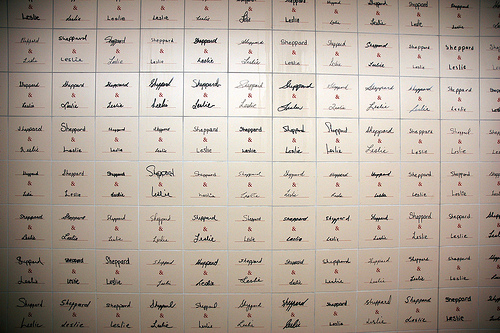 Leslie Leslie Leslie Leslie Leslie Leslie Leslie Leslie Leslie Leslie Leslie
Sheppard Sheppard Sheppard Sheppard Sheppard Sheppard Sheppard Sheppard Sheppard Sheppard Sheppard
& & & & & & & & & & &
Leslie Leslie Leslie Leslie Leslie Leslie Leslie Leslie Leslie Leslie Leslie
Sheppard Sheppard Sheppard Sheppard Sheppard Sheppard Sheppard Sheppard Sheppard Sheppard Sheppard
& & & & & & & & & & &
Leslie Leslie Leslie Leslie Leslie Leslie Leslie Leslie Leslie Leslie Leslie
Sheppard Sheppard Sheppard Sheppard Sheppard Sheppard Sheppard Sheppard Sheppard Sheppard Sheppard
& & & & & & & & & & &
Leslie Leslie Leslie Leslie Leslie Leslie Leslie Leslie Leslie Leslie Leslie
Sheppard Sheppard Sheppard Sheppard Sheppard Sheppard Sheppard Sheppard Sheppard Sheppard Sheppard
& & & & & & & & & & &
Leslie Leslie Leslie Leslie Leslie Leslie Leslie Leslie Leslie Leslie Leslie
Sheppard Sheppard Sheppard Sheppard Sheppard Sheppard Sheppard Sheppard Sheppard Sheppard Sheppard
& & & & & & & & & & &
Leslie Leslie Leslie Leslie Leslie Leslie Leslie Leslie Leslie Leslie Leslie
Sheppard Sheppard Sheppard Sheppard Sheppard Sheppard Sheppard Sheppard Sheppard Sheppard Sheppard
& & & & & & & & & & &
Leslie Leslie Leslie Leslie Leslie Leslie Leslie Leslie Leslie Leslie Leslie
Sheppard Sheppard Sheppard Sheppard Sheppard Sheppard Sheppard Sheppard Sheppard Sheppard Sheppard
& & & & & & & & & & &
Leslie Leslie Leslie Leslie Leslie Leslie Leslie Leslie Leslie Leslie Leslie